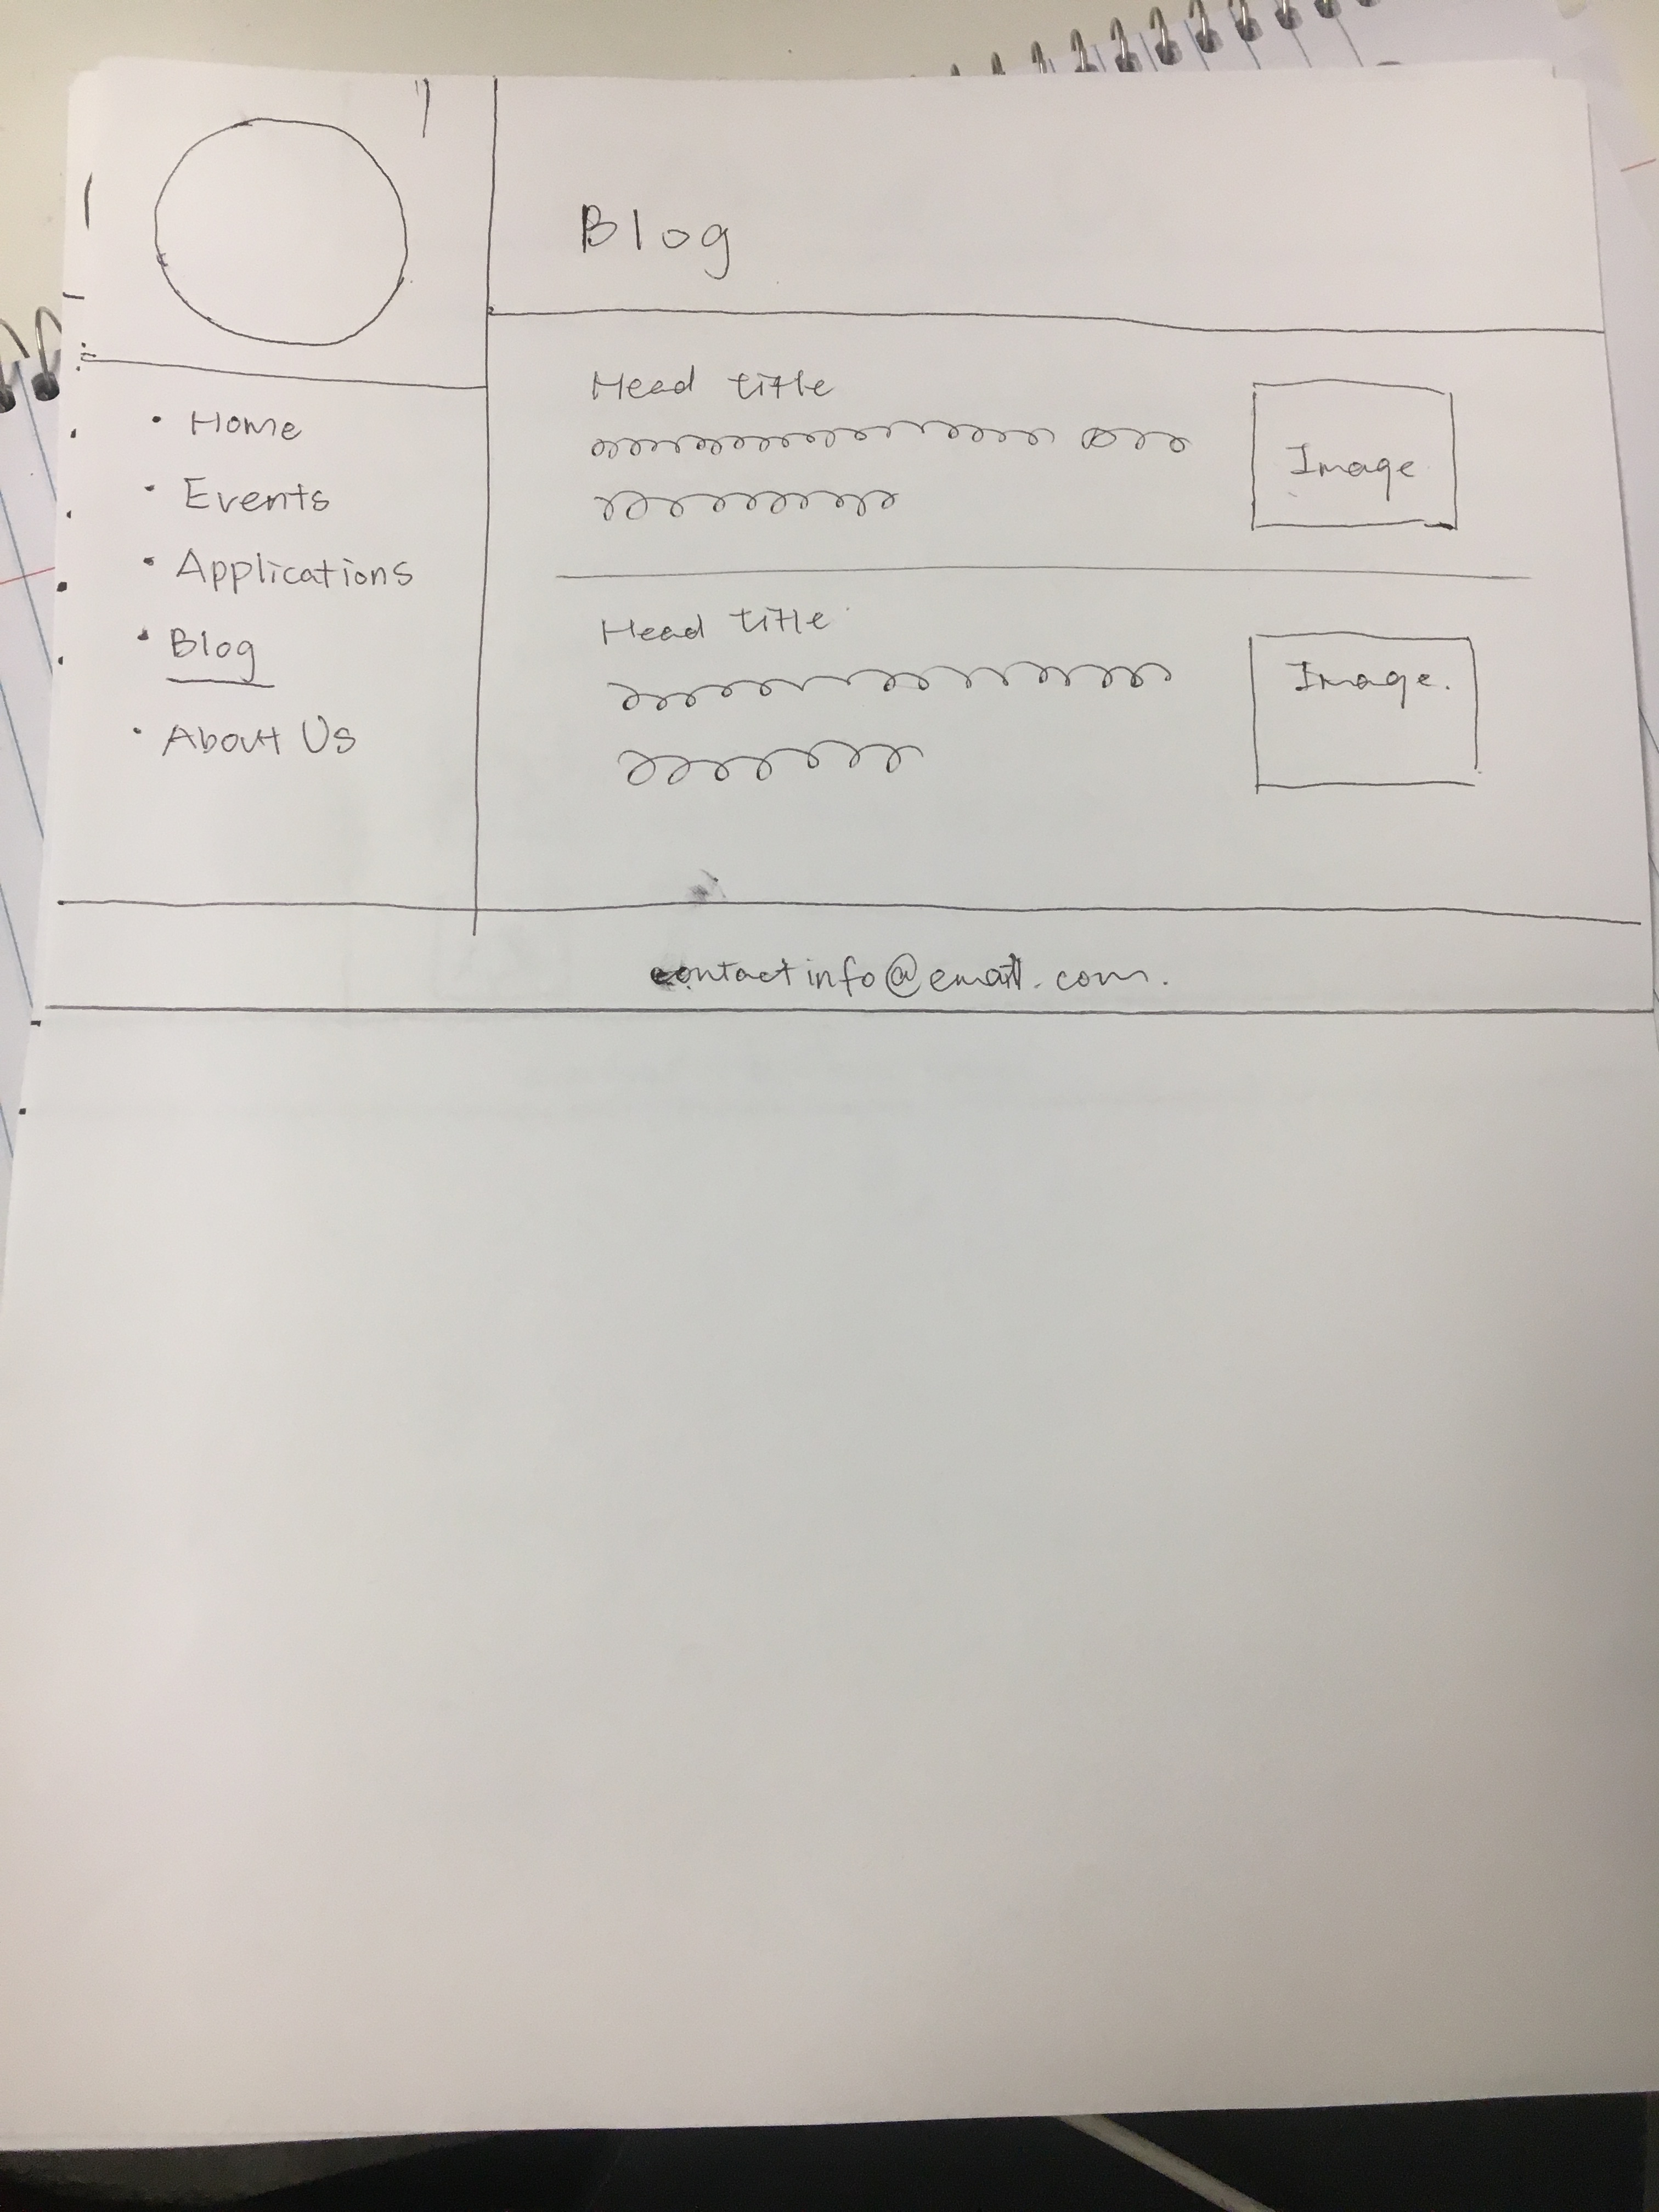 Blog
Home
Events
Applications
Blog
About Us
Head title
Image
Head title
Image.
contactinfo@email.com.